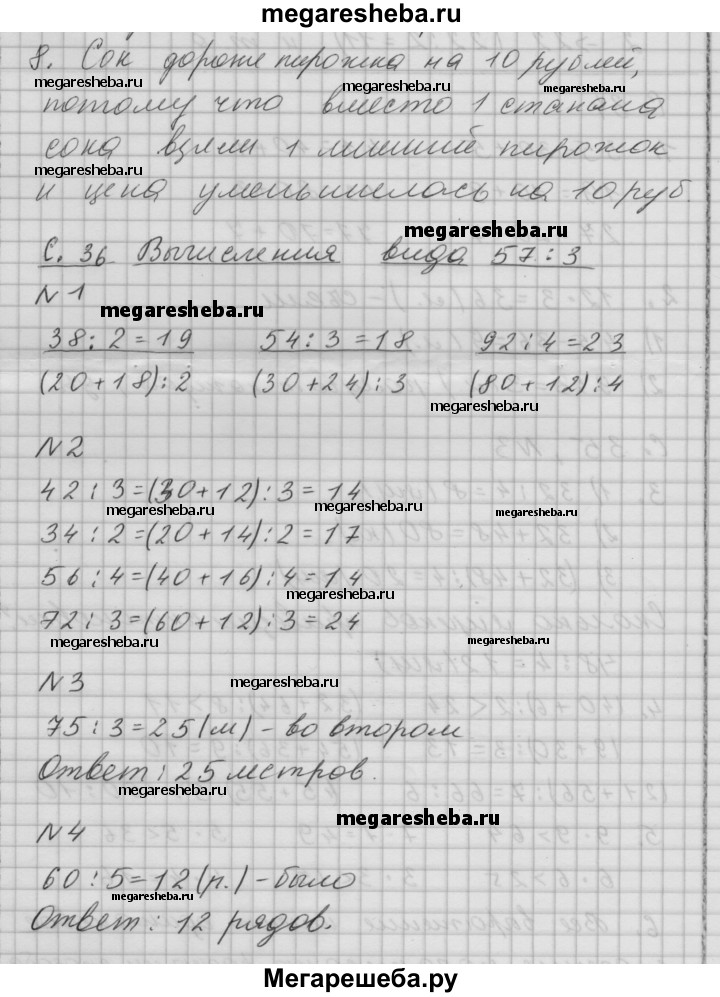 megaresheba.ru
8. Сок дороже пирожка на 10 рублей,
megaresheba.ru megaresheba.ru
потому что вместо 1 стакана
сока взяли 1 лишний пирожок
megaresheba.ru megaresheba.ru
и цена уменьшилась на 10 руб.
megaresheba.ru
С. 36 Вычисления вида 57:3
N1
megaresheba.ru
38:2=19 54:3=18 92:4=23
(20+18):2 (30+24):3 (80+12):4
megaresheba.ru
N2
42:3=(30+12):3=14
megaresheba.ru megaresheba.ru megaresheba.ru
34:2=(20+14):2=17
56:4=(40+16):4=14
megaresheba.ru megaresheba.ru
72:3=(60+12):3=24
megaresheba.ru megaresheba.ru
N3 megaresheba.ru
75:3=25(м)-во втором
Ответ: 25 метров.
megaresheba.ru
megaresheba.ru
N4
60:5=12(р.)-было
megaresheba.ru megaresheba.ru
Ответ: 12 рядов.
Мегарешеба.ру